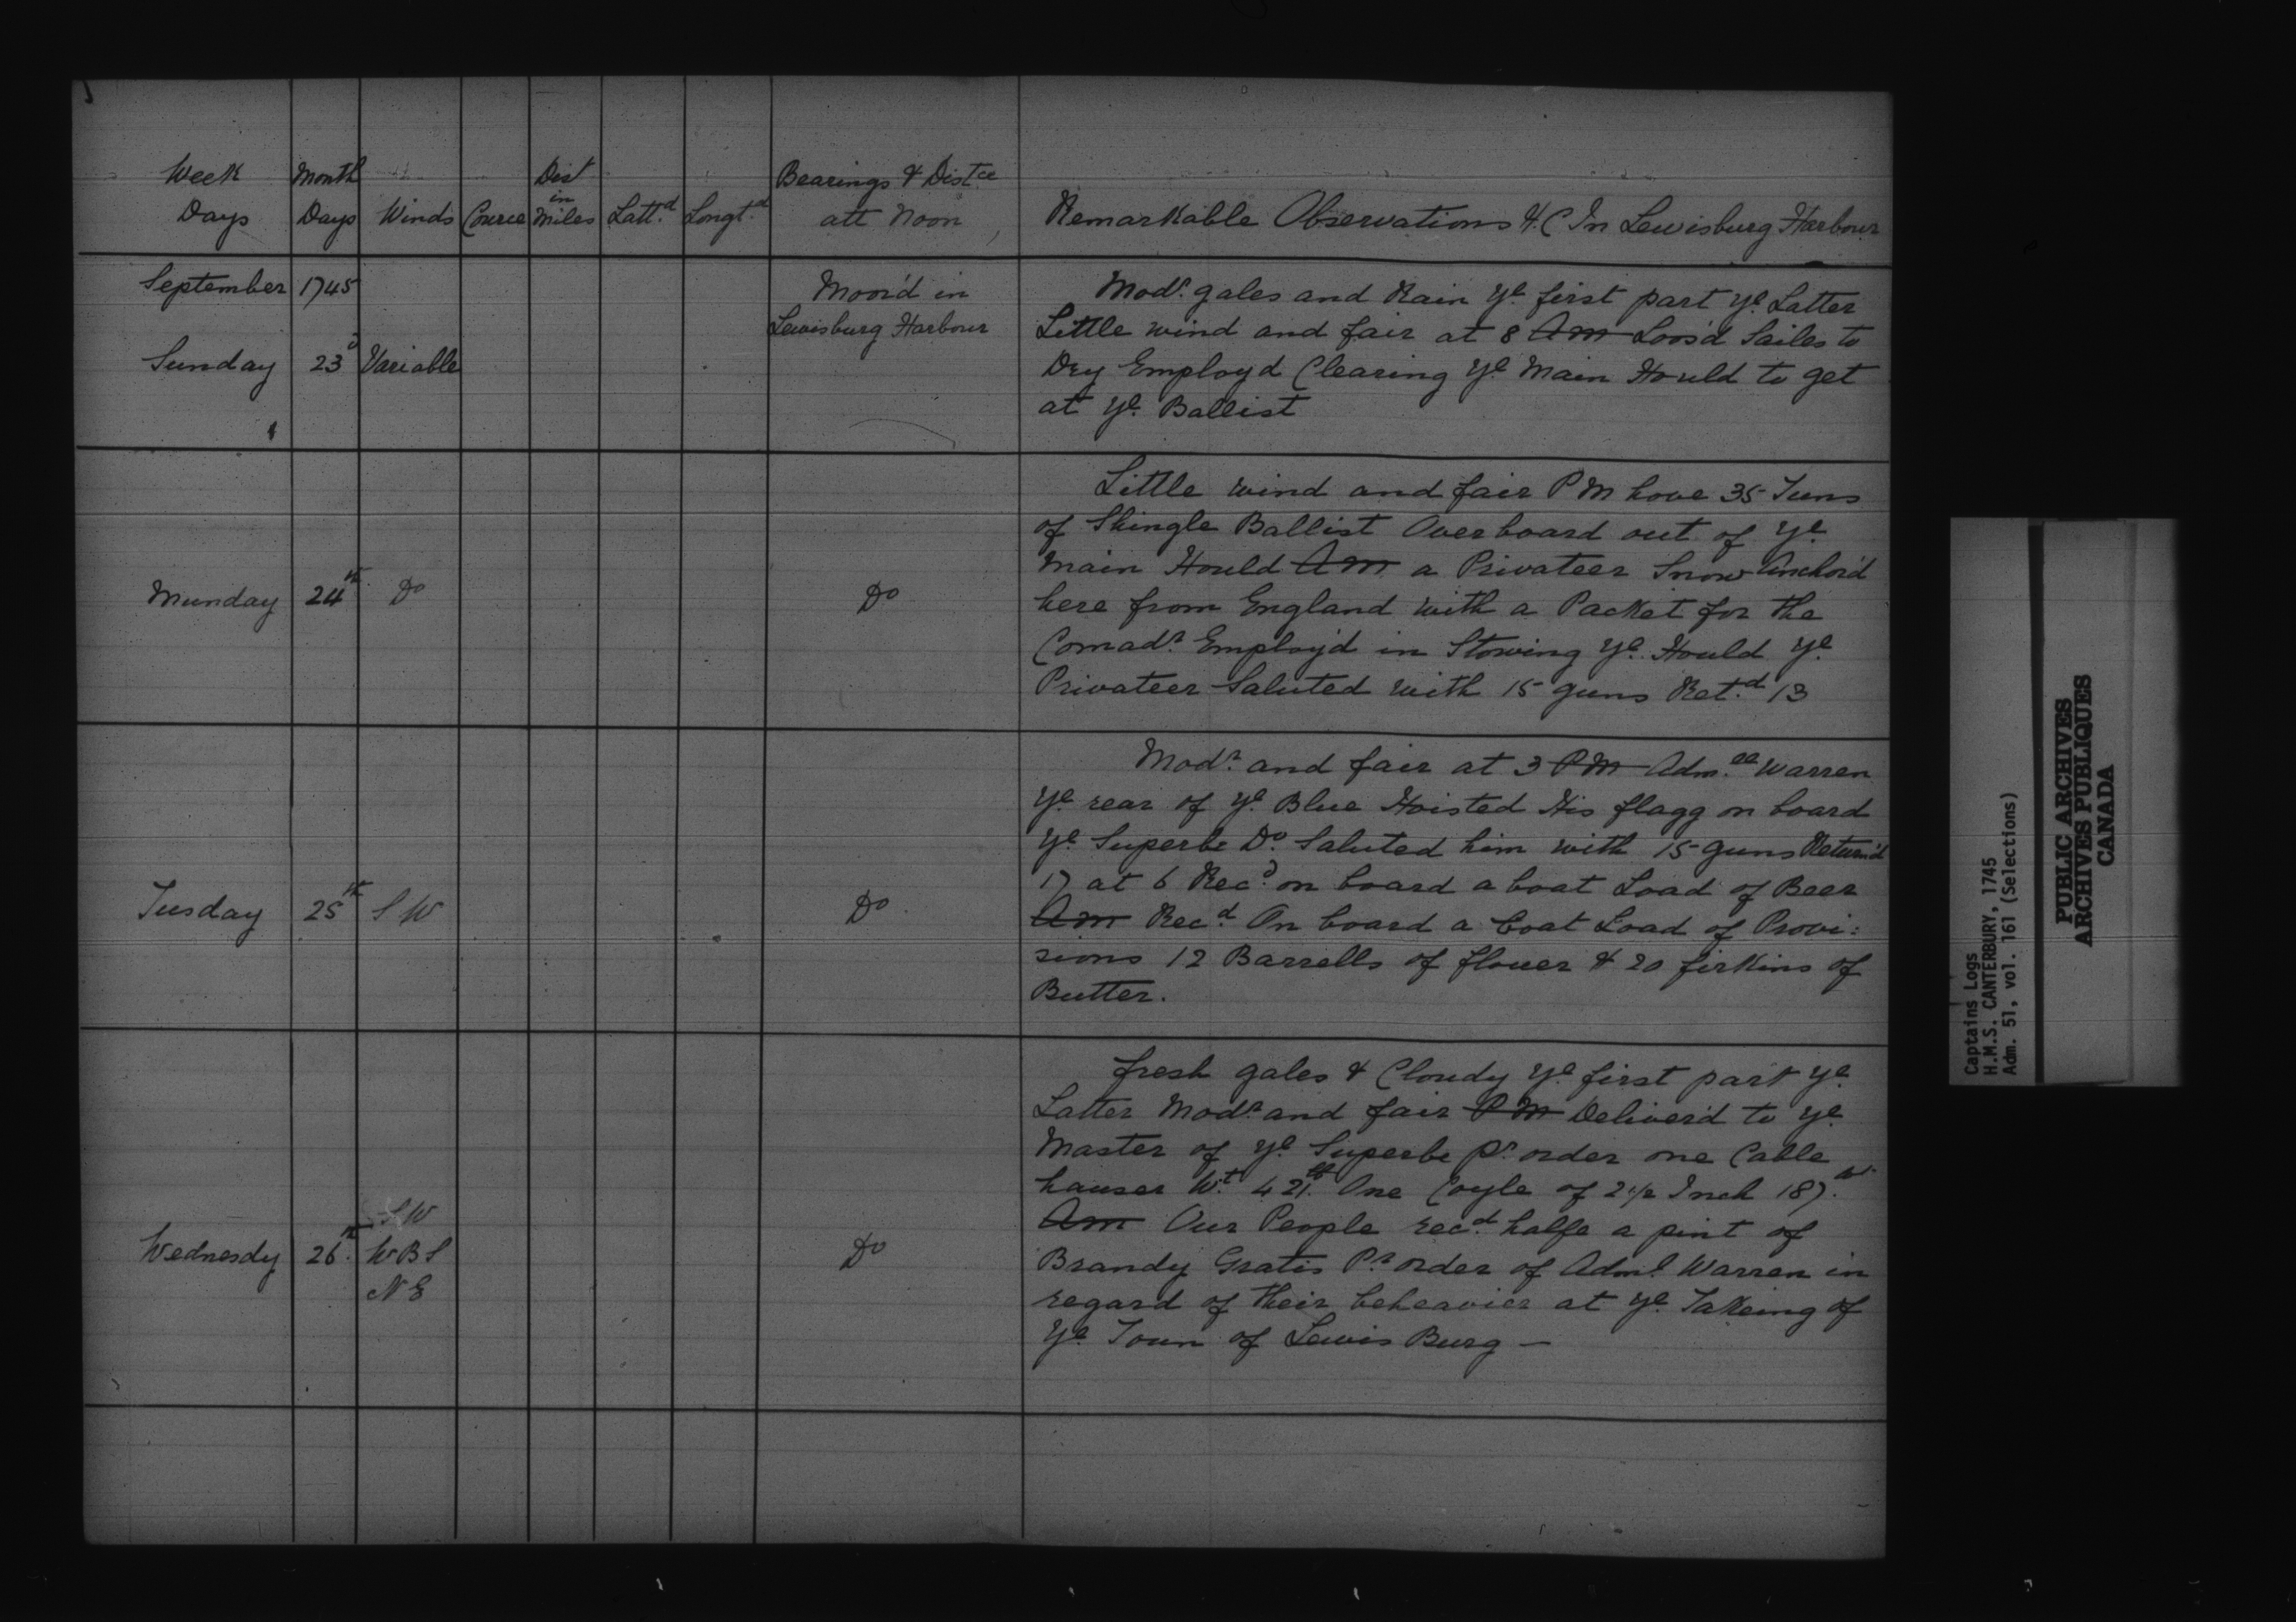 Week Days | Month Days | Winds | Cource | Dist in Miles | Latt.d | Longt.d | Bearings & Dist.ce att Noon | Remarkable Observations &C In Lewisburg Harbour
September 1745
Moor'd in
Lewisburg Harbour
Sunday 23d Variable
Modr. gales and Rain ye. first part ye. Latter
Little wind and fair at 8 AM Loos'd Sailes to
Dry Employd Clearing ye. Main Hould to get
at ye. Ballist
Munday 24th Do Do
Little wind and fair PM hove 35 Tuns
of Shingle Ballist Overboard out of ye.
Main Hould AM a Privateer Snow Anchor'd
here from England with a Packet for the
Comadr. Employ'd in Stowing ye. Hould ye.
Privateer Saluted with 15 guns Ret.d 13
Tusday 25th S W Do
Modr. and fair at 3 PM Adm.ll Warren
ye. rear of ye. Blue Hoisted His flagg on board
ye. Superbe Do. Saluted him with 15 guns Return'd
17 at 6 Recd. on board a boat Load of Beer
AM Recd. On board a boat Load of Provi:
sions 12 Barrells of flouer & 20 firkins of
Butter.
Wednesdy 26th. S W
W B S
N E
Do
fresh gales & Cloudy ye. first part ye.
Latter Modr. and fair PM Deliver'd to ye.
Master of ye. Superbe pr. order one Cable
hauser Wt. 4 21 One Coyle of 2 1/2 Inch 187.
AM Our People recd. halfe a pint of
Brandy Gratis Pr. order of Adml. Warren in
regard of their beheavier at ye. Takeing of
ye. Toun of Lewis Burg —
Captains Logs
H.M.S. CANTERBURY, 1745
Adm. 51, vol. 161 (Selections)
PUBLIC ARCHIVES
ARCHIVES PUBLIQUES
CANADA